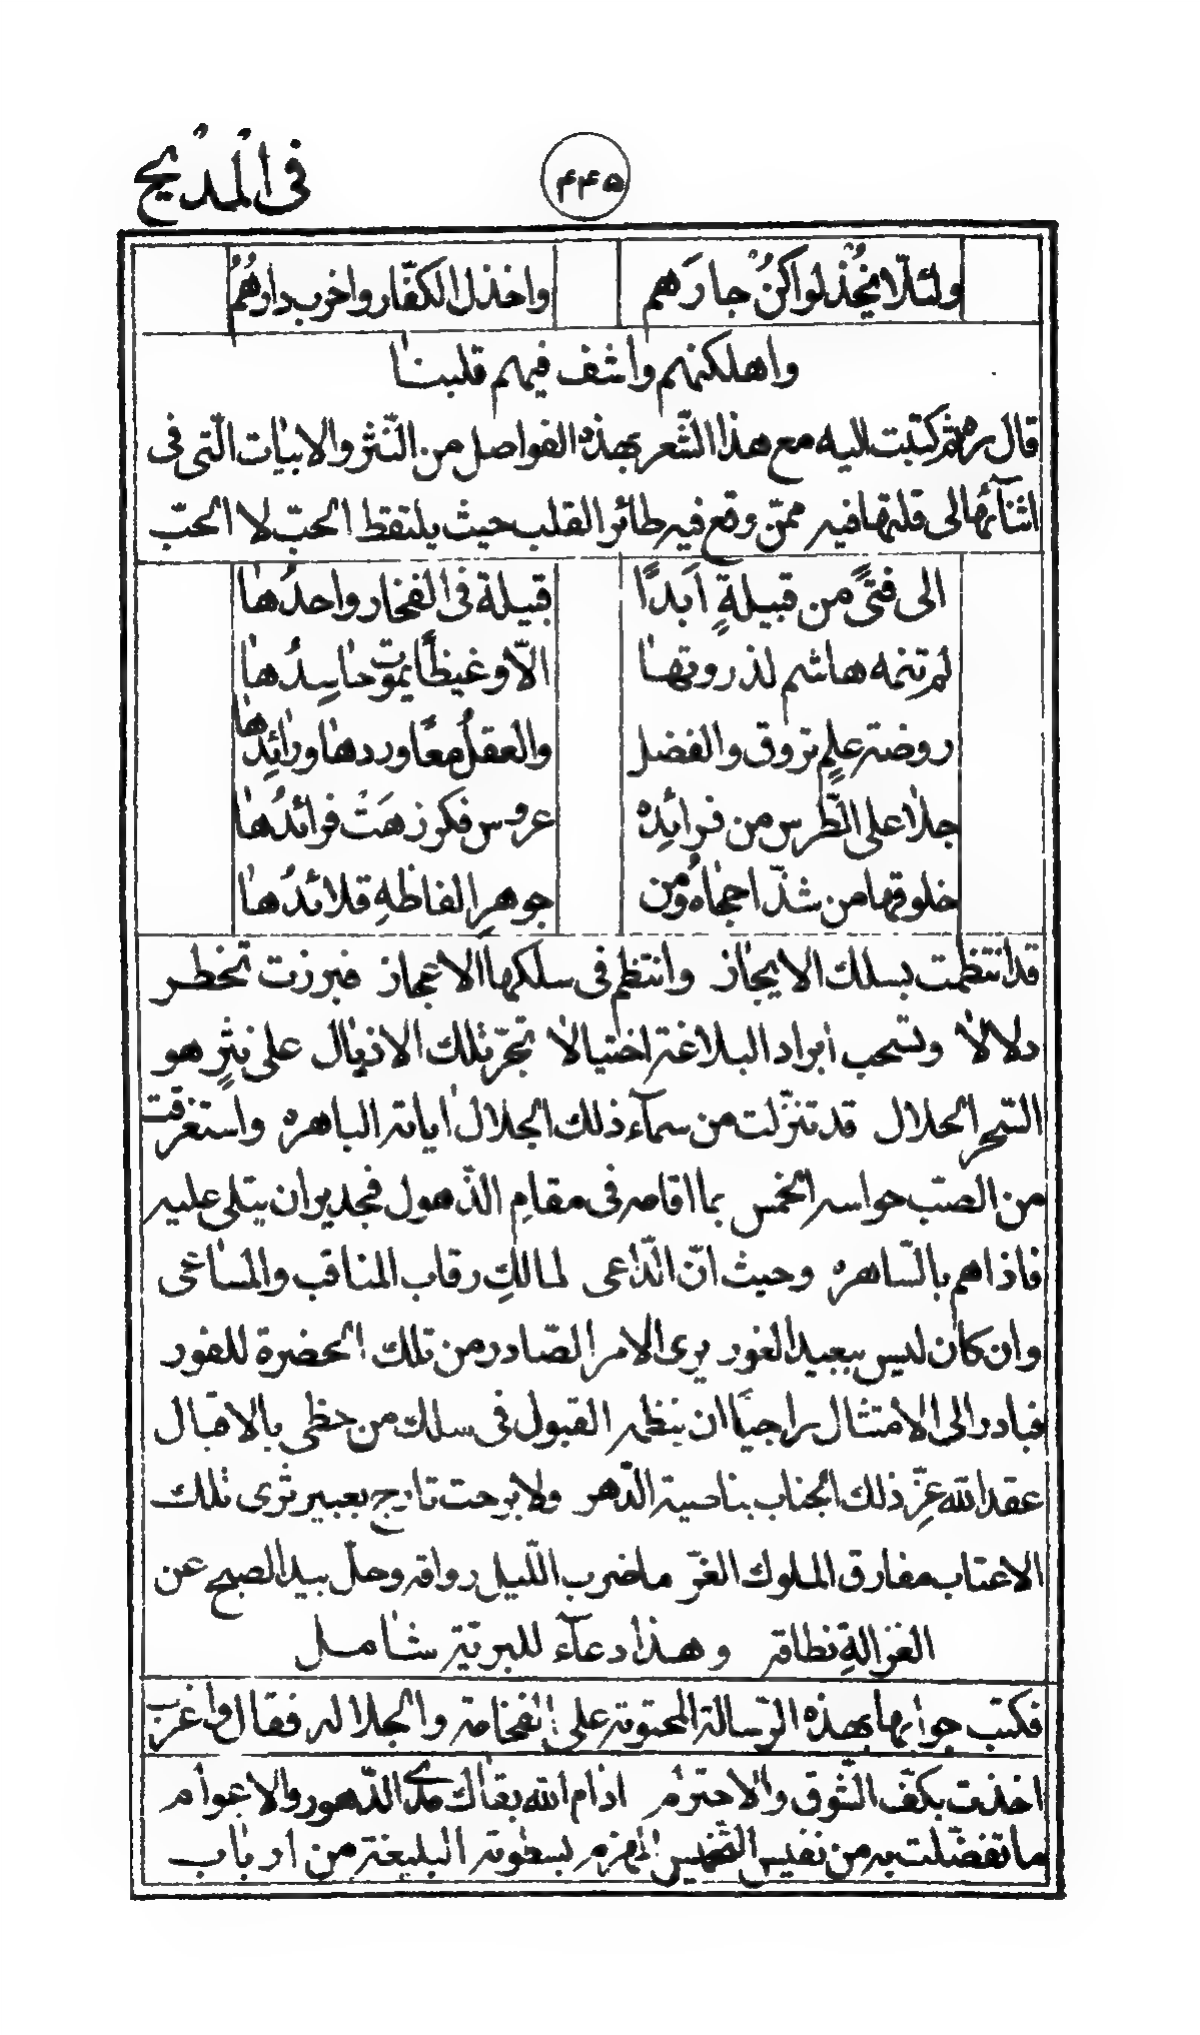 فى المديح
۴۴۵
ولئلّا يخذلوا كن جارهم واخذل الكفّار واخرب دارهم
واهلكنهم واشف فيهم قلبنا
قال ره ثم كتبت اليه مع هذا الشّعر بهذه الفواصل من النّثر والابيات الّتى فى
اثنآئها الى قلتها فيه ممّن وقع فيه طائر القلب حيث يلتقط الحبّ لا الحبّ
الى فتىً من قبيلةٍ ابدًا قبيلة فى الفخار واحدُها
لم تنمه هاشم لذروتها الّا وغيظًا يموت حاسِدُها
روضة علمٍ تروق والفضل والعقلُ معًا وردها ورائِدها
جلا على الطّرس من فرائدِه عروس فكر زهَتْ فرائدُها
خلوقها من شذا حجاهُ ومن جوهرِ الفاظهِ قلائدُها
قد انتظمت بسلك الايجاز وانتظم فى سلكها الاعجاز فبرزت تخطر
دلالا وتسحب ابراد البلاغة اختيالا تجرّ تلك الاذيال على نثرٍ هو
السّحر الحلال قد تنزّلت من سمآء ذلك الجلال اياته الباهره واستغرقت
من الصبّ حواسه الخمس بما اقامه فى مقام الذّهول فجدير ان يتلى عليه
فاذا هم بالسّاهره وحيث انّ الدّاعى لمالكِ رقاب المناقب والمساعى
وان كان ليس ببعيد الغور يرى الامر الصّادر من تلك الحضرة للفور
فبادر الى الامتثال راجيًا ان ينظم القبول فى سلك من حظى بالاقبال
عقد الله عزّ ذلك الجناب بناصية الدّهر ولا برحت تارج بعبير ثرى تلك
الاعتاب مفارق الملوك الغرّ ما ضرب اللّيل رواقه وحلّ بيد الصبح عن
الغزالةِ نطاقه وهذا دعآء للبرية شامل
فكتب جوابها بهذه الرّسالة المحتوية على الفخامة والجلاله فقال واغرب
اخذت بكفّ الشّوق والاحترام ادام الله بقاك مدى الدّهور والاعوام
ما تفضّلت به من نفيس النّفيس الهزم بسطوته البليغة من ارباب